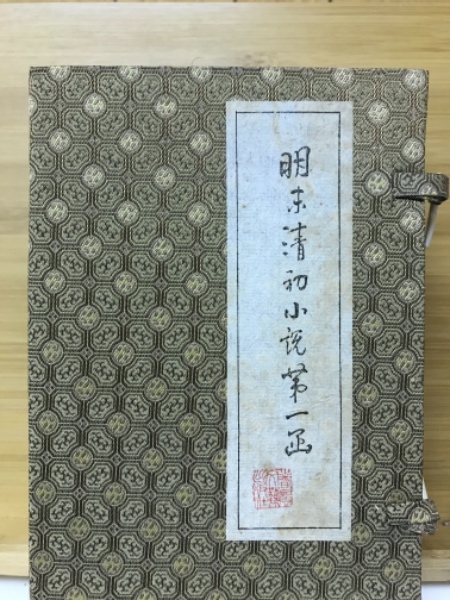 明末清初小说第一函